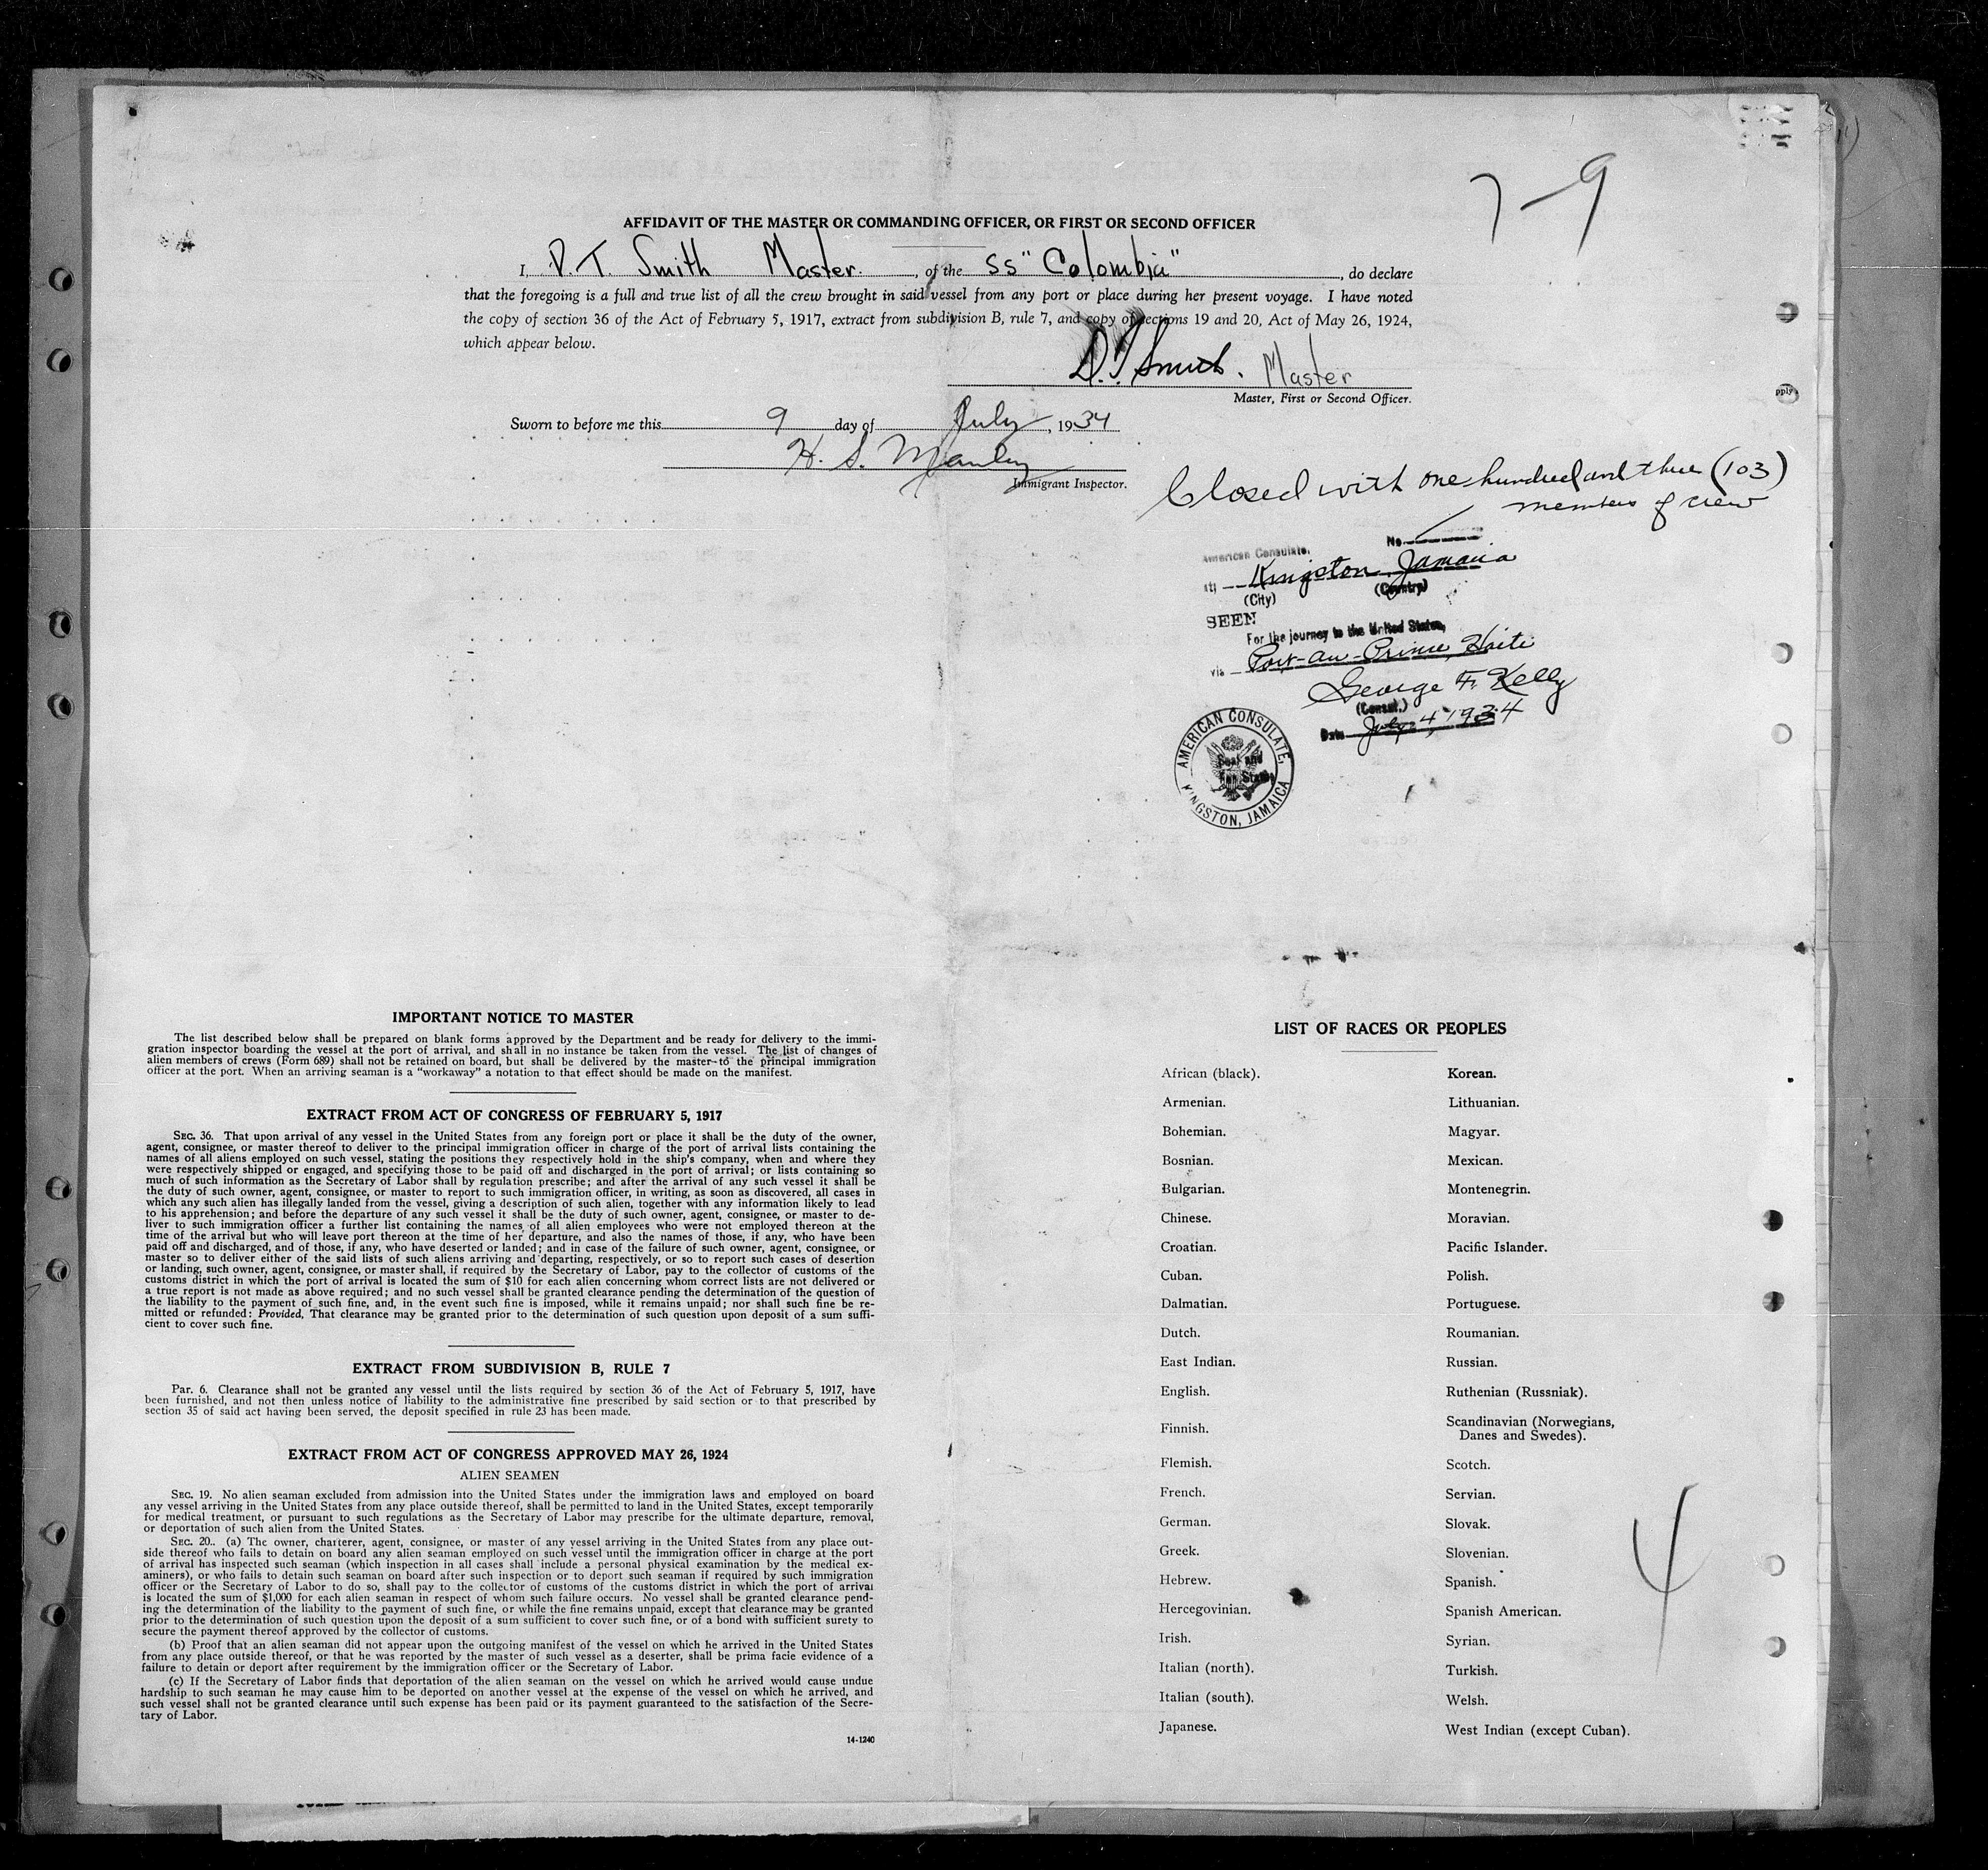 7-9
AFFIDAVIT OF THE MASTER OR COMMANDING OFFICER, OR FIRST OR SECOND OFFICER
I, D. T. Smith Master, of the SS "Colombia", do declare
that the foregoing is a full and true list of all the crew brought in said vessel from any port or place during her present voyage. I have noted
the copy of section 36 of the Act of February 5, 1917, extract from subdivision B, rule 7, and copy of sections 19 and 20, Act of May 26, 1924,
which appear below.
D. T. Smith. Master
Master, First or Second Officer.
Sworn to before me this 9 day of July, 1934
H. S. Manley
Immigrant Inspector.
Closed with one hundred and three (103)
members of crew
No
American Consulate,
at Kingston Jamaica
(City) (Country)
SEEN
For the journey to the United States,
via Port-au-Prince, Haiti
George F. Kelly
(Consul.)
Date July 4, 1934
AMERICAN CONSULATE,
KINGSTON, JAMAICA
Seal and
Fee Stamp
pply.
IMPORTANT NOTICE TO MASTER
The list described below shall be prepared on blank forms approved by the Department and be ready for delivery to the immi-
gration inspector boarding the vessel at the port of arrival, and shall in no instance be taken from the vessel. The list of changes of
alien members of crews (Form 689) shall not be retained on board, but shall be delivered by the master to the principal immigration
officer at the port. When an arriving seaman is a "workaway" a notation to that effect should be made on the manifest.
EXTRACT FROM ACT OF CONGRESS OF FEBRUARY 5, 1917
SEC. 36. That upon arrival of any vessel in the United States from any foreign port or place it shall be the duty of the owner,
agent, consignee, or master thereof to deliver to the principal immigration officer in charge of the port of arrival lists containing the
names of all aliens employed on such vessel, stating the positions they respectively hold in the ship's company, when and where they
were respectively shipped or engaged, and specifying those to be paid off and discharged in the port of arrival; or lists containing so
much of such information as the Secretary of Labor shall by regulation prescribe; and after the arrival of any such vessel it shall be
the duty of such owner, agent, consignee, or master to report to such immigration officer, in writing, as soon as discovered, all cases in
which any such alien has illegally landed from the vessel, giving a description of such alien, together with any information likely to lead
to his apprehension; and before the departure of any such vessel it shall be the duty of such owner, agent, consignee, or master to de-
liver to such immigration officer a further list containing the names of all alien employees who were not employed thereon at the
time of the arrival but who will leave port thereon at the time of her departure, and also the names of those, if any, who have been
paid off and discharged, and of those, if any, who have deserted or landed; and in case of the failure of such owner, agent, consignee, or
master so to deliver either of the said lists of such aliens arriving and departing, respectively, or so to report such cases of desertion
or landing, such owner, agent, consignee, or master shall, if required by the Secretary of Labor, pay to the collector of customs of the
customs district in which the port of arrival is located the sum of $10 for each alien concerning whom correct lists are not delivered or
a true report is not made as above required; and no such vessel shall be granted clearance pending the determination of the question of
the liability to the payment of such fine, and, in the event such fine is imposed, while it remains unpaid; nor shall such fine be re-
mitted or refunded: Provided, That clearance may be granted prior to the determination of such question upon deposit of a sum suffi-
cient to cover such fine.
EXTRACT FROM SUBDIVISION B, RULE 7
PAR. 6. Clearance shall not be granted any vessel until the lists required by section 36 of the Act of February 5, 1917, have
been furnished, and not then unless notice of liability to the administrative fine prescribed by said section or to that prescribed by
section 35 of said act having been served, the deposit specified in rule 23 has been made.
EXTRACT FROM ACT OF CONGRESS APPROVED MAY 26, 1924
ALIEN SEAMEN
SEC. 19. No alien seaman excluded from admission into the United States under the immigration laws and employed on board
any vessel arriving in the United States from any place outside thereof, shall be permitted to land in the United States, except temporarily
for medical treatment, or pursuant to such regulations as the Secretary of Labor may prescribe for the ultimate departure, removal,
or deportation of such alien from the United States.
SEC. 20. (a) The owner, charterer, agent, consignee, or master of any vessel arriving in the United States from any place out-
side thereof who fails to detain on board any alien seaman employed on such vessel until the immigration officer in charge at the port
of arrival has inspected such seaman (which inspection in all cases shall include a personal physical examination by the medical ex-
aminers), or who fails to detain such seaman on board after such inspection or to deport such seaman if required by such immigration
officer or the Secretary of Labor to do so, shall pay to the collector of customs of the customs district in which the port of arrival
is located the sum of $1,000 for each alien seaman in respect of whom such failure occurs. No vessel shall be granted clearance pend-
ing the determination of the liability to the payment of such fine, or while the fine remains unpaid, except that clearance may be granted
prior to the determination of such question upon the deposit of a sum sufficient to cover such fine, or of a bond with sufficient surety to
secure the payment thereof approved by the collector of customs.
(b) Proof that an alien seaman did not appear upon the outgoing manifest of the vessel on which he arrived in the United States
from any place outside thereof, or that he was reported by the master of such vessel as a deserter, shall be prima facie evidence of a
failure to detain or deport after requirement by the immigration officer or the Secretary of Labor.
(c) If the Secretary of Labor finds that deportation of the alien seaman on the vessel on which he arrived would cause undue
hardship to such seaman he may cause him to be deported on another vessel at the expense of the vessel on which he arrived, and
such vessel shall not be granted clearance until such expense has been paid or its payment guaranteed to the satisfaction of the Secre-
tary of Labor.
14-1240
LIST OF RACES OR PEOPLES
African (black).
Armenian.
Bohemian.
Bosnian.
Bulgarian.
Chinese.
Croatian.
Cuban.
Dalmatian.
Dutch.
East Indian.
English.
Finnish.
Flemish.
French.
German.
Greek.
Hebrew.
Hercegovinian.
Irish.
Italian (north).
Italian (south).
Japanese.
Korean.
Lithuanian.
Magyar.
Mexican.
Montenegrin.
Moravian.
Pacific Islander.
Polish.
Portuguese.
Roumanian.
Russian.
Ruthenian (Russniak).
Scandinavian (Norwegians,
Danes and Swedes).
Scotch.
Servian.
Slovak.
Slovenian.
Spanish.
Spanish American.
Syrian.
Turkish.
Welsh.
West Indian (except Cuban).
4